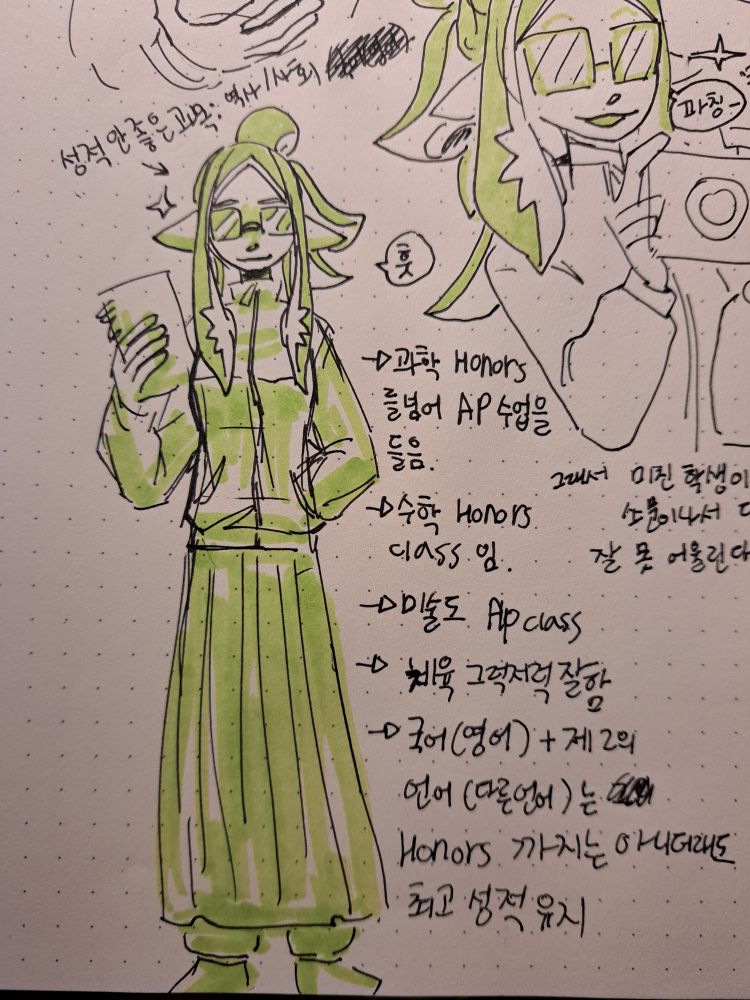 성적 안 좋은 과목: 역사/사회
파칭-
훗
→과학 Honors
를넘어 AP 수업을
들음.
→수학 Honors
class 임.
→미술도 Ap class
→체육 그럭저럭 잘함
→국어(영어) + 제 2의
언어 (다른언어)는
Honors 까지는 아니더래도
최고 성적 유지
그래서 미진 학생이
소문이나서 다
잘 못 어울린다